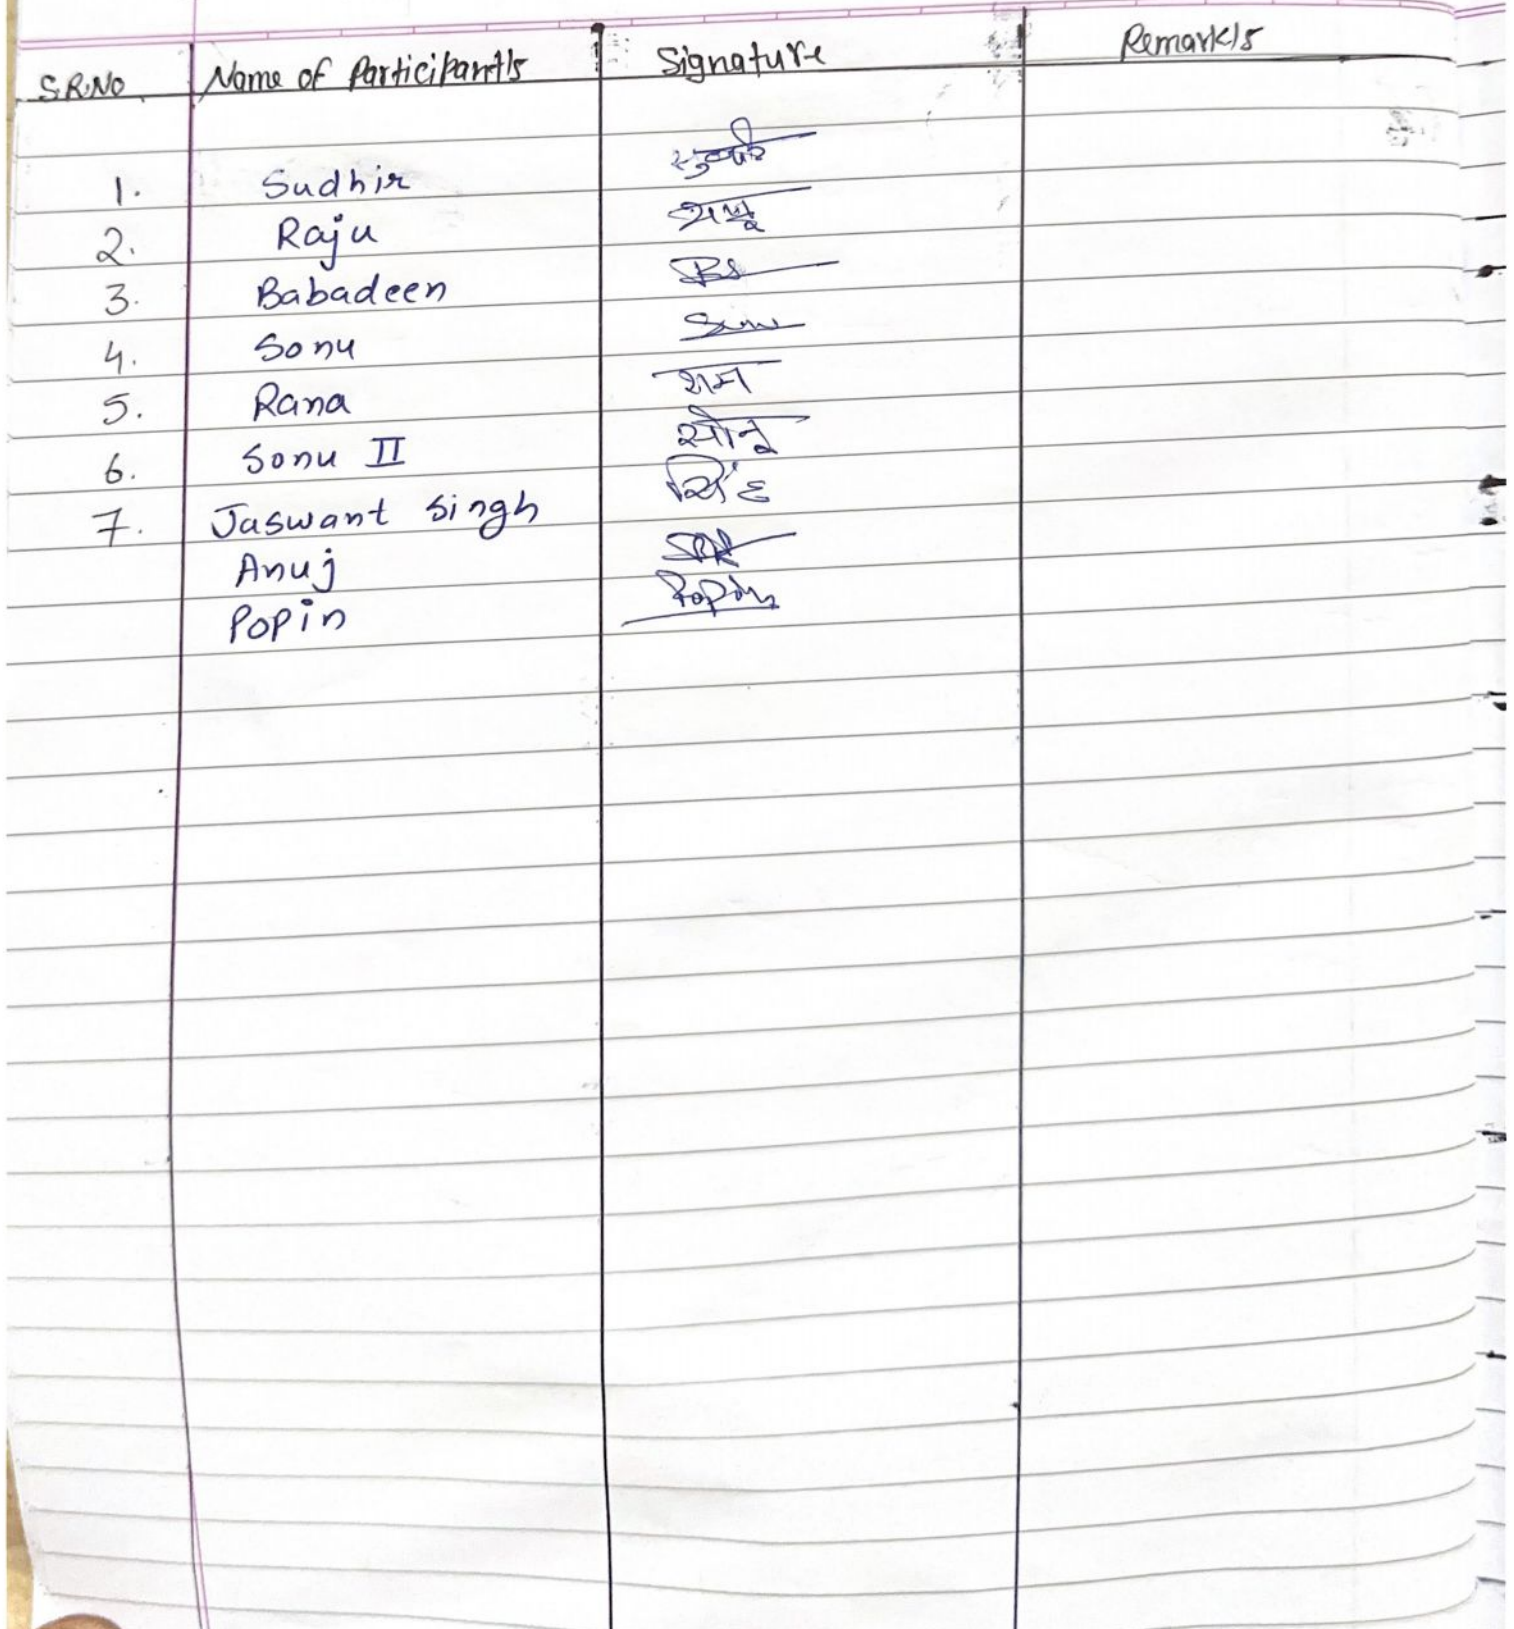 S.R.No Name of Participant/s Signature Remark/s
1. Sudhir
2. Raju
3. Babadeen BS
4. Sonu
5. Rana
6. Sonu II सोनू
7. Jaswant Singh सिंह
Anuj
Popin Popin